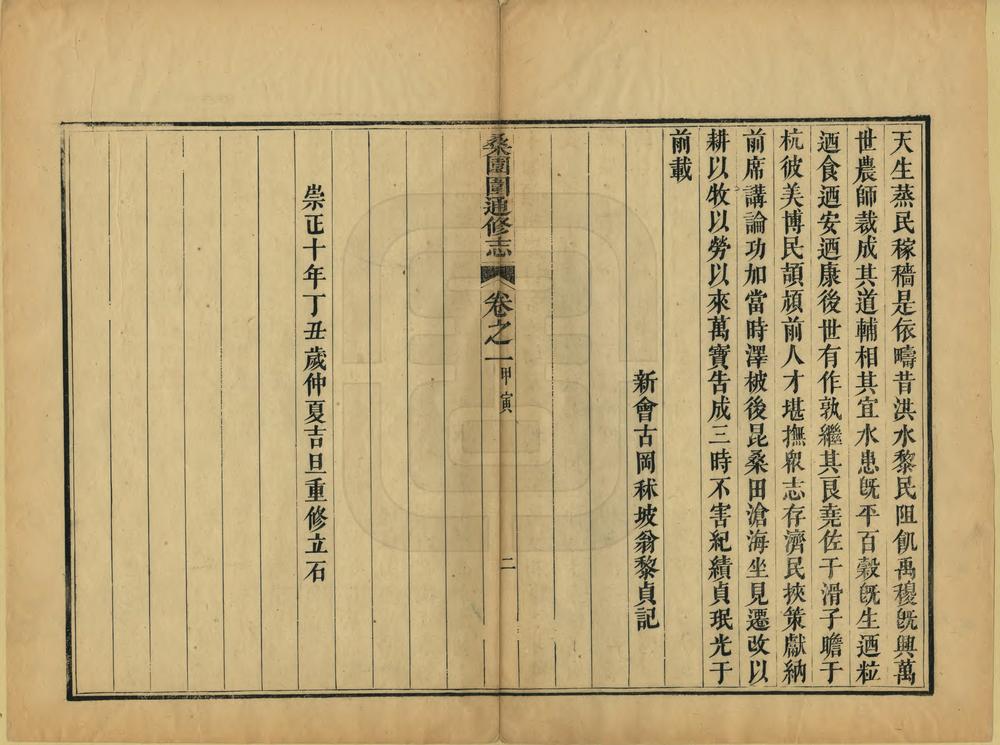 天生蒸民稼穡是依疇昔洪水黎民阻飢禹稷旣興萬
世農師裁成其道輔相其宜水患旣平百穀旣生迺粒
迺食迺安迺康後世有作孰繼其艮堯佐于滑子瞻于
杭彼美博民頡頏前人才堪撫衆志存濟民挾策獻納
前席講論功加當時澤被後昆桑田滄海坐見遷改以
耕以牧以勞以來萬寶告成三時不害紀績貞珉光于
前載
新會古岡秫坡翁黎貞記
桑園圍通修志
卷之一甲寅
二
崇正十年丁丑歲仲夏吉旦重修立石